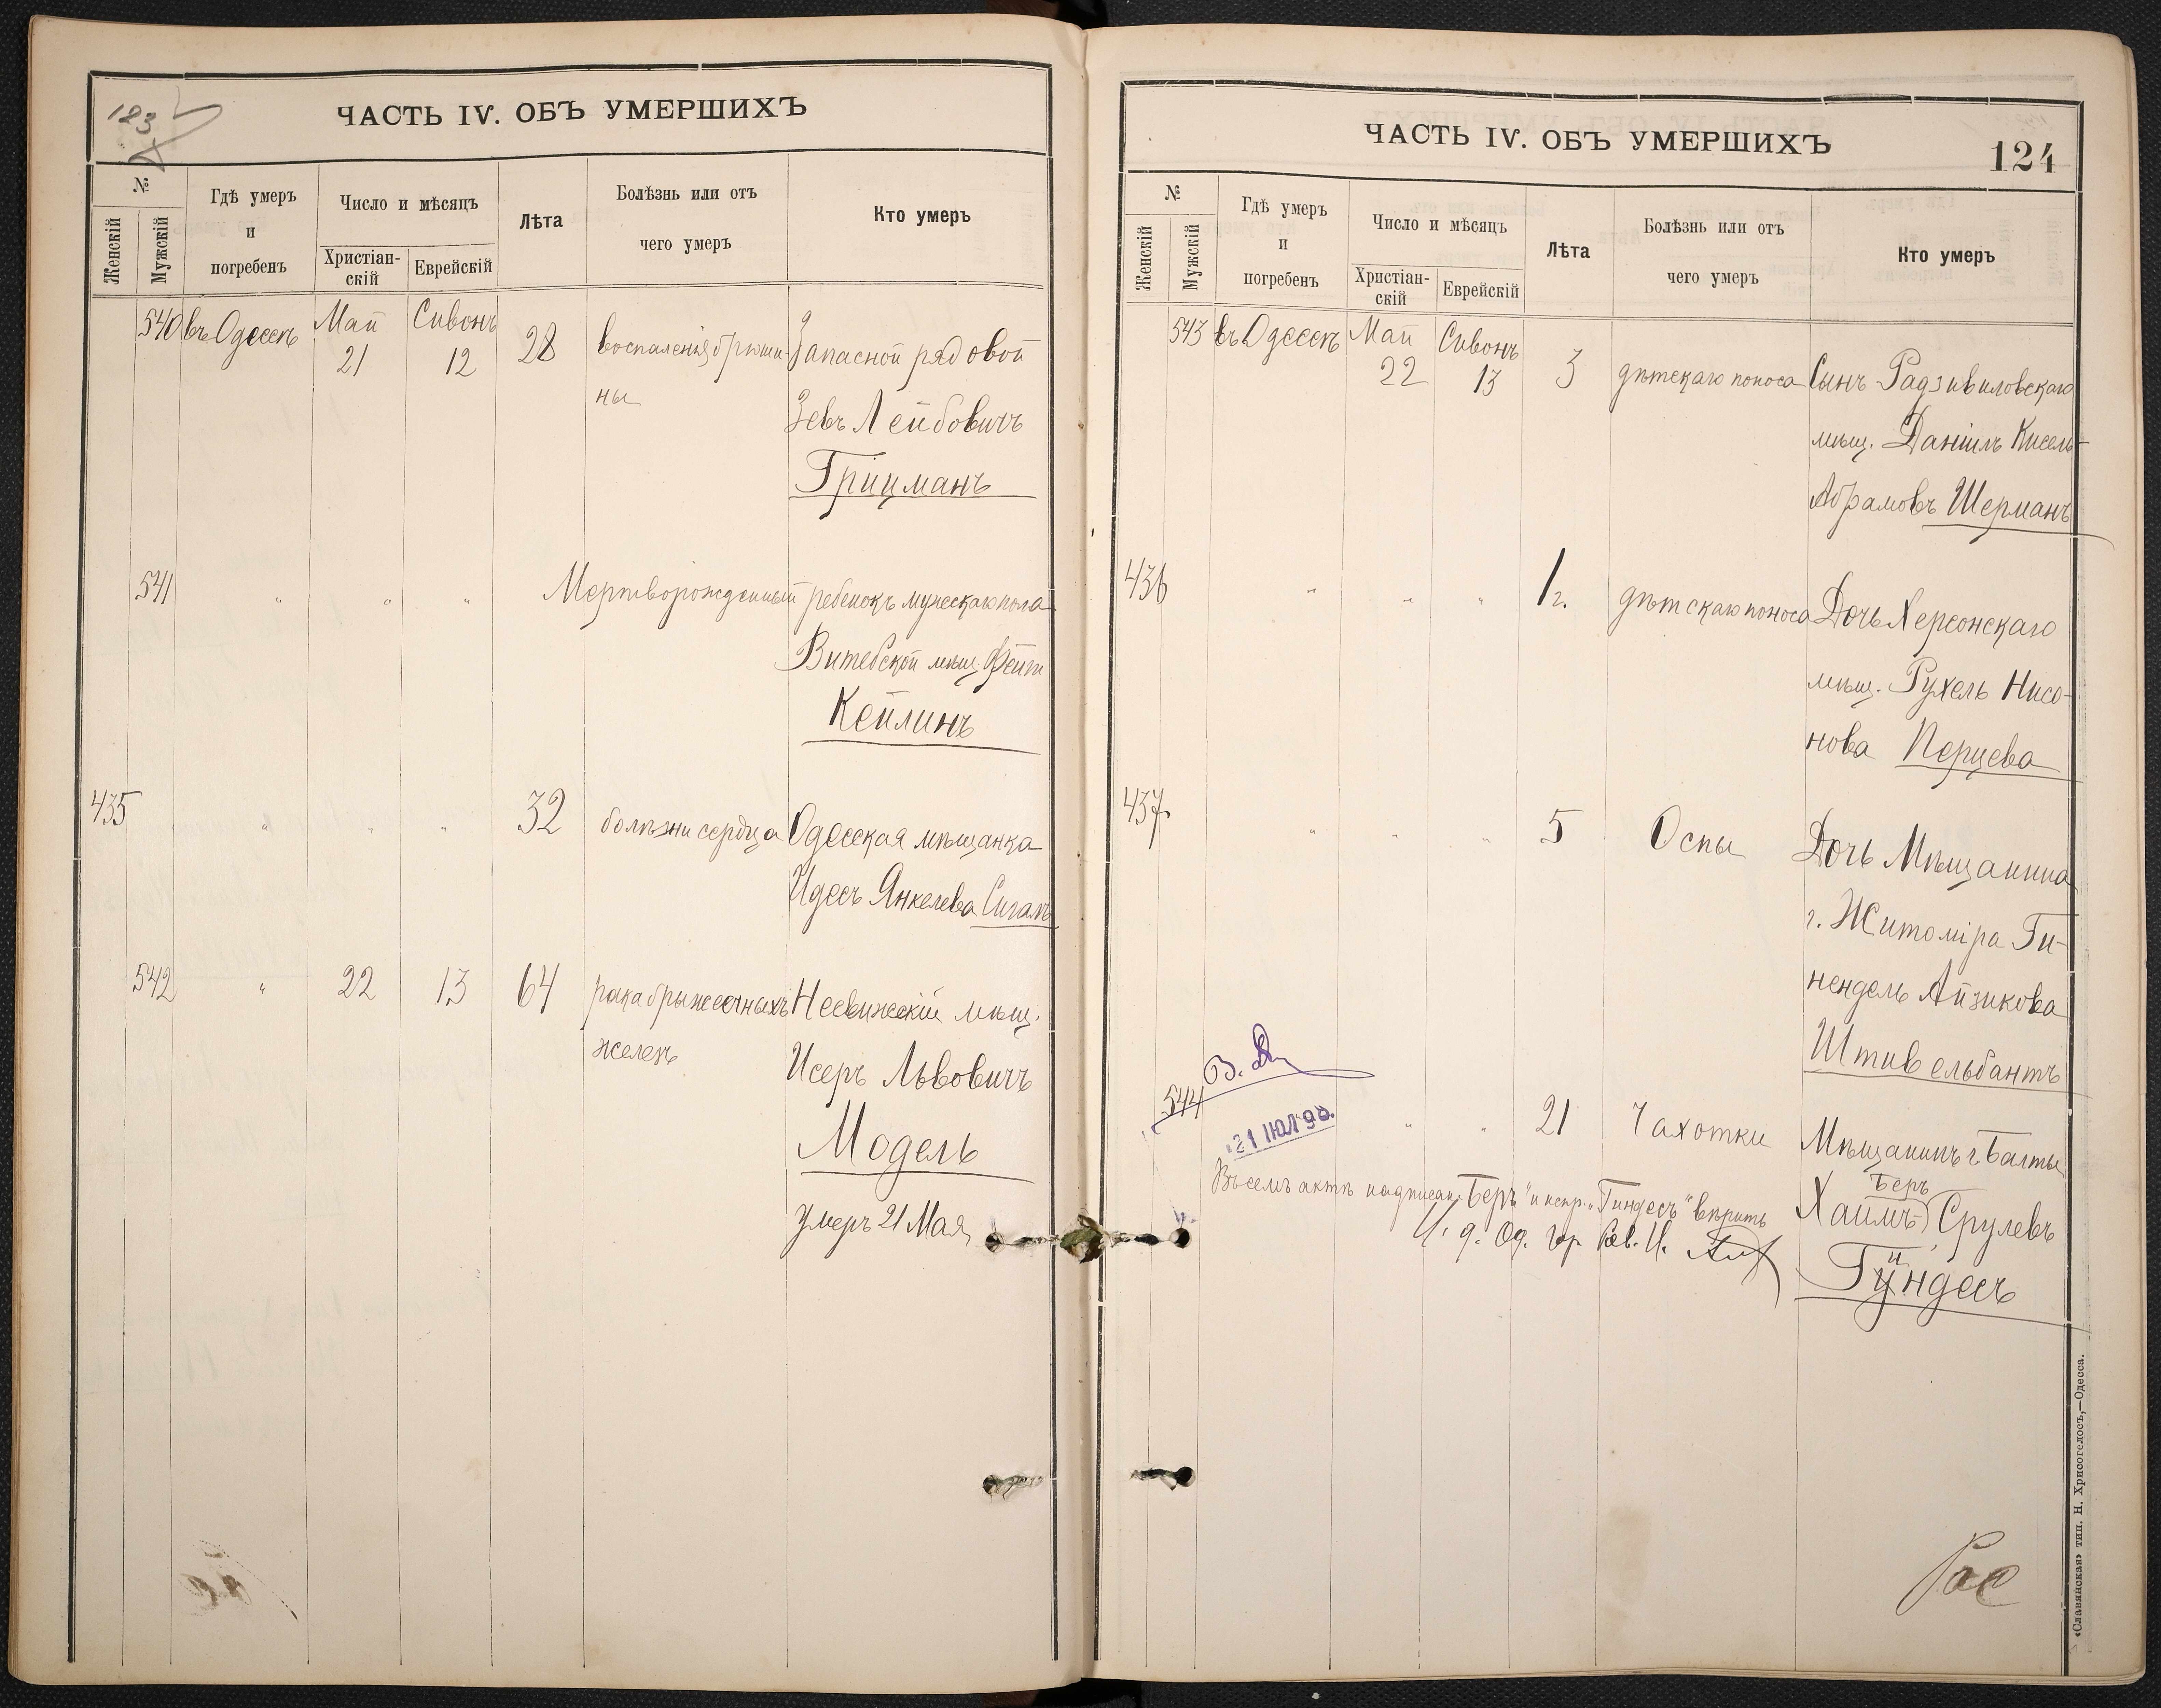 123
ЧАСТЬ IV. ОБЪ УМЕРШИХЪ
№
Женскій
Мужскій
Гдѣ умеръ
и
погребенъ
Число и мѣсяцъ
Христіан-
скій
Еврейскій
Лѣта
Болѣзнь или отъ
чего умеръ
Кто умеръ
540 въ Одессѣ Май Сивонъ 28 воспаленія брюши- Запасной рядовой
21 12 ны
Зевъ Лейбовичъ
Грицманъ
541 " " " Мертворожденный ребенокъ мужескаго пола
Витебской мѣщ. Фейги
Кейлинъ
435 " " " 32 болѣзни сердца Одесская мѣщанка
Идесъ Янкелева Сигалъ
542 " 22 13 64 рака брыжеечныхъ Несвижескій мѣщ.
железъ
Исеръ Львовичъ
Модель
умеръ 21 Мая
ЧАСТЬ IV. ОБЪ УМЕРШИХЪ
124
№
Женскій
Мужскій
Гдѣ умеръ
и
погребенъ
Число и мѣсяцъ
Христіан-
скій
Еврейскій
Лѣта
Болѣзнь или отъ
чего умеръ
Кто умеръ
543 въ Одессѣ Май Сивонъ
22 13 3 дѣтскаго поноса Сынъ Радзивиловскаго
мѣщ. Даніилъ Кисель-
Абрамовъ Шерманъ
436 " " " 1 г. дѣтскаго поноса Дочь Херсонскаго
мѣщ. Рухель Нисо-
нова Перцева
437 " " " 5 Оспы Дочь Мѣщанина
г. Житоміра Ги-
нендель Айзикова
Штивельбантъ
544 " " 21 Чахотки Мѣщанинъ г. Балты
21 ІЮЛ 98.
Беръ
Хаимъ Срулевъ
и
Гундесъ
Въ семъ актѣ надписан. "Беръ" и испр. "Гиндесъ" вѣрить
И. д. Од. Гор. Рав. И.
«Славянская» тип. Н. Хрисогелосъ,—Одесса.